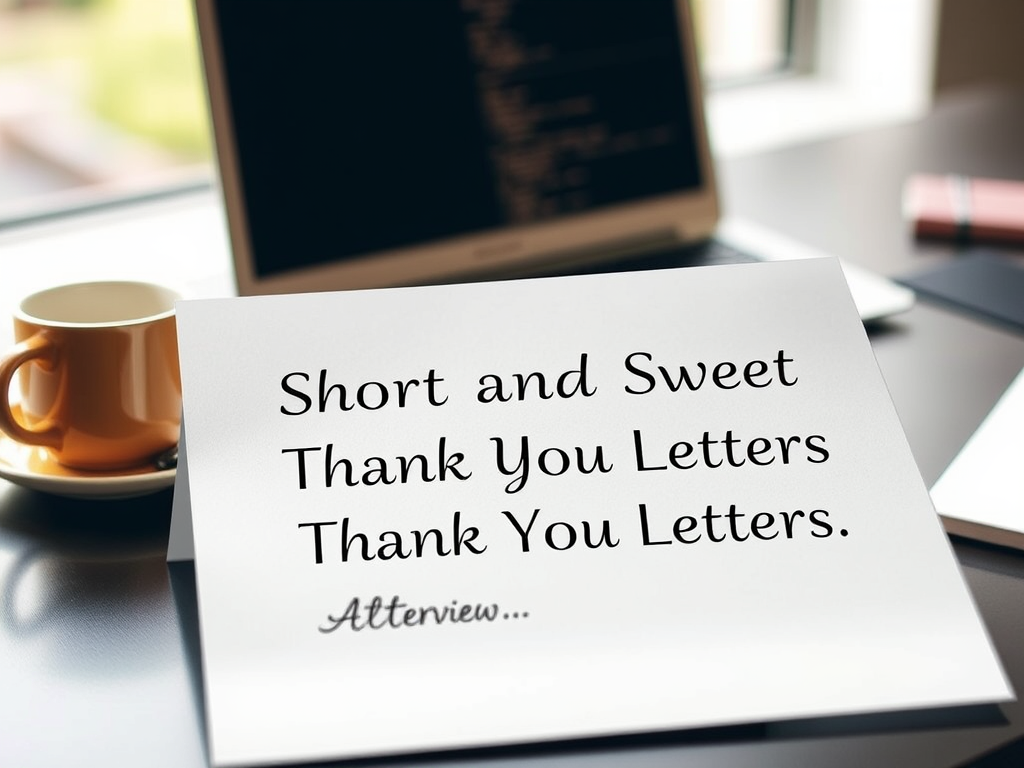 Short and Sweet
Thank You Letters
Thank You Letters.
Atterview...